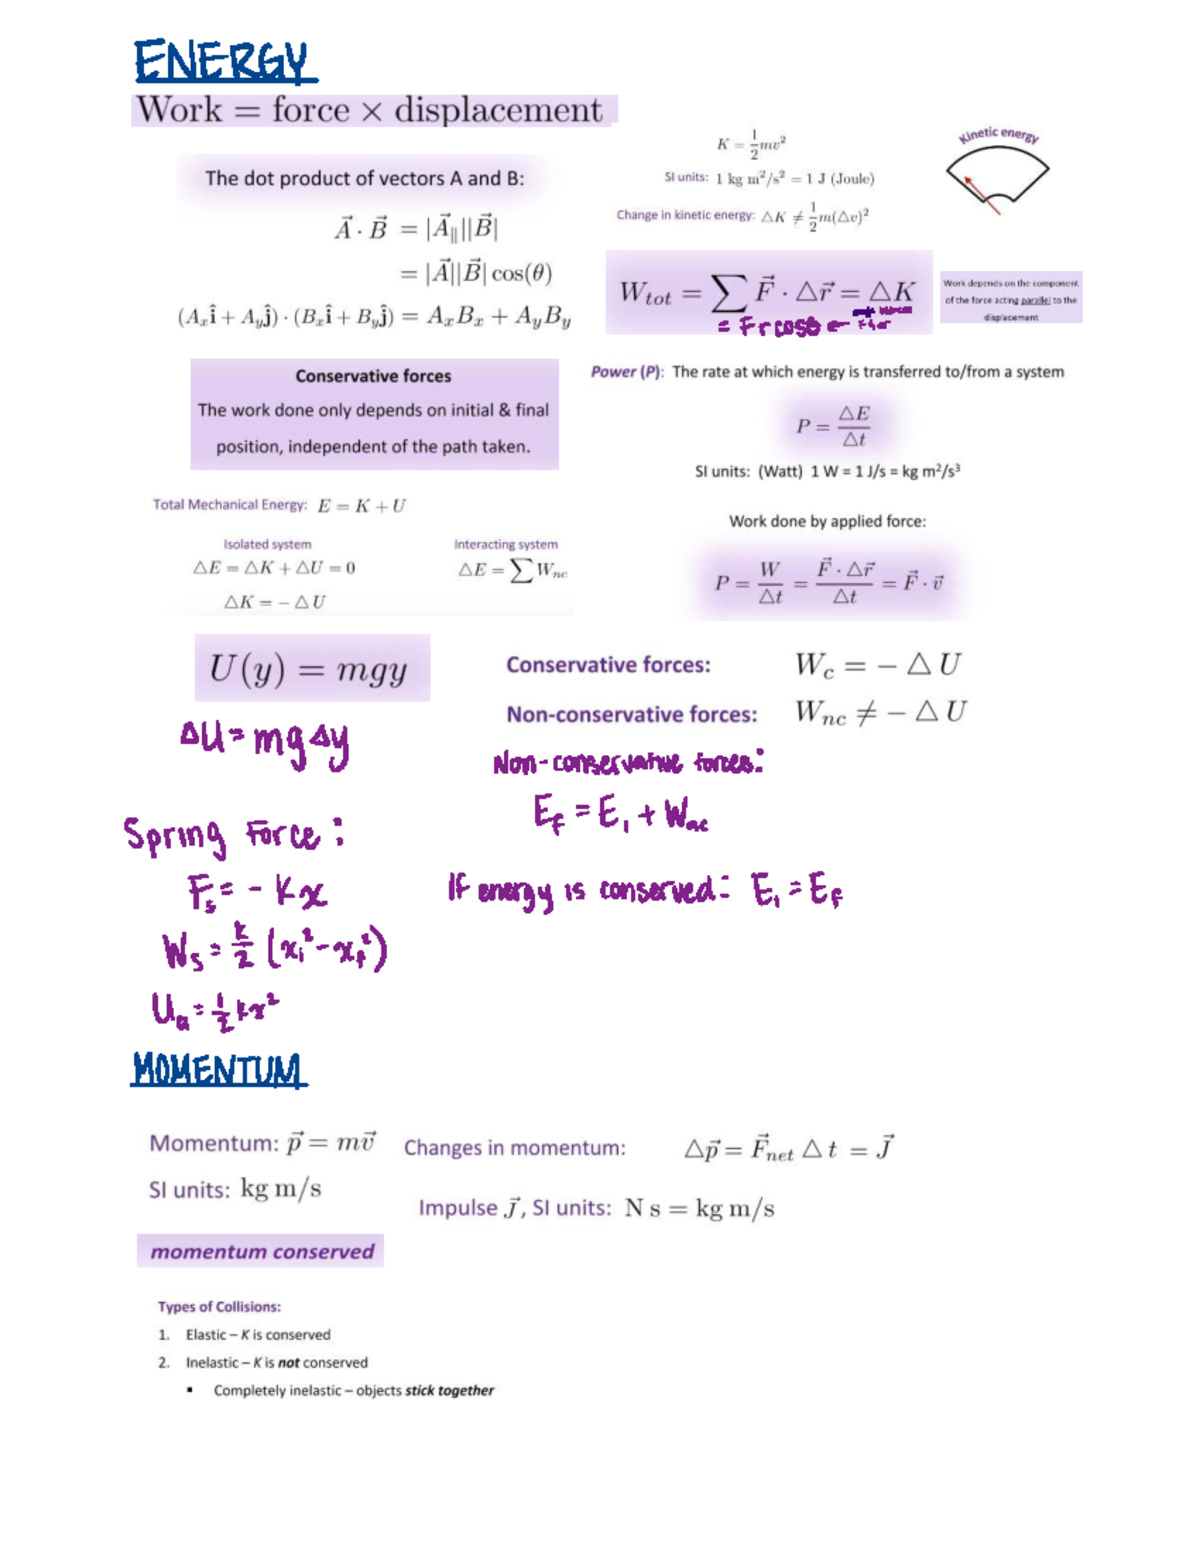 ENERGY
Work = force × displacement
The dot product of vectors A and B:
A⃗ · B⃗ = |A⃗∥||B⃗|
= |A⃗||B⃗| cos(θ)
(Aₓî + Aᵧĵ) · (Bₓî + Bᵧĵ) = AₓBₓ + AᵧBᵧ
K = 1/2 mv²
SI units: 1 kg m²/s² = 1 J (Joule)
Change in kinetic energy: △K ≠ 1/2 m(△v)²
Kinetic energy
W_tot = ∑ F⃗ · △r⃗ = △K
= Fr cosθ
Work depends on the component
of the force acting parallel to the
displacement
Conservative forces
The work done only depends on initial & final
position, independent of the path taken.
Power (P): The rate at which energy is transferred to/from a system
P = △E/△t
SI units: (Watt) 1 W = 1 J/s = kg m²/s³
Total Mechanical Energy: E = K + U
Isolated system
△E = △K + △U = 0
△K = − △ U
Interacting system
△E = ∑ W_nc
Work done by applied force:
P = W/△t = F⃗ · △r⃗/△t = F⃗ · v⃗
U(y) = mgy
Conservative forces: W_c = − △ U
Non-conservative forces: W_nc ≠ − △ U
ΔU = mgΔy
Non-conservative forces:
E_f = E_i + W_nc
Spring Force:
F_s = - kx
If energy is conserved: E_i = E_f
W_s = k/2 (x_i² - x_f²)
U = 1/2 kx²
MOMENTUM
Momentum: p⃗ = mv⃗
Changes in momentum: △p⃗ = F⃗_net △ t = J⃗
SI units: kg m/s
Impulse J⃗, SI units: N s = kg m/s
momentum conserved
Types of Collisions:
1. Elastic – K is conserved
2. Inelastic – K is not conserved
▪ Completely inelastic – objects stick together